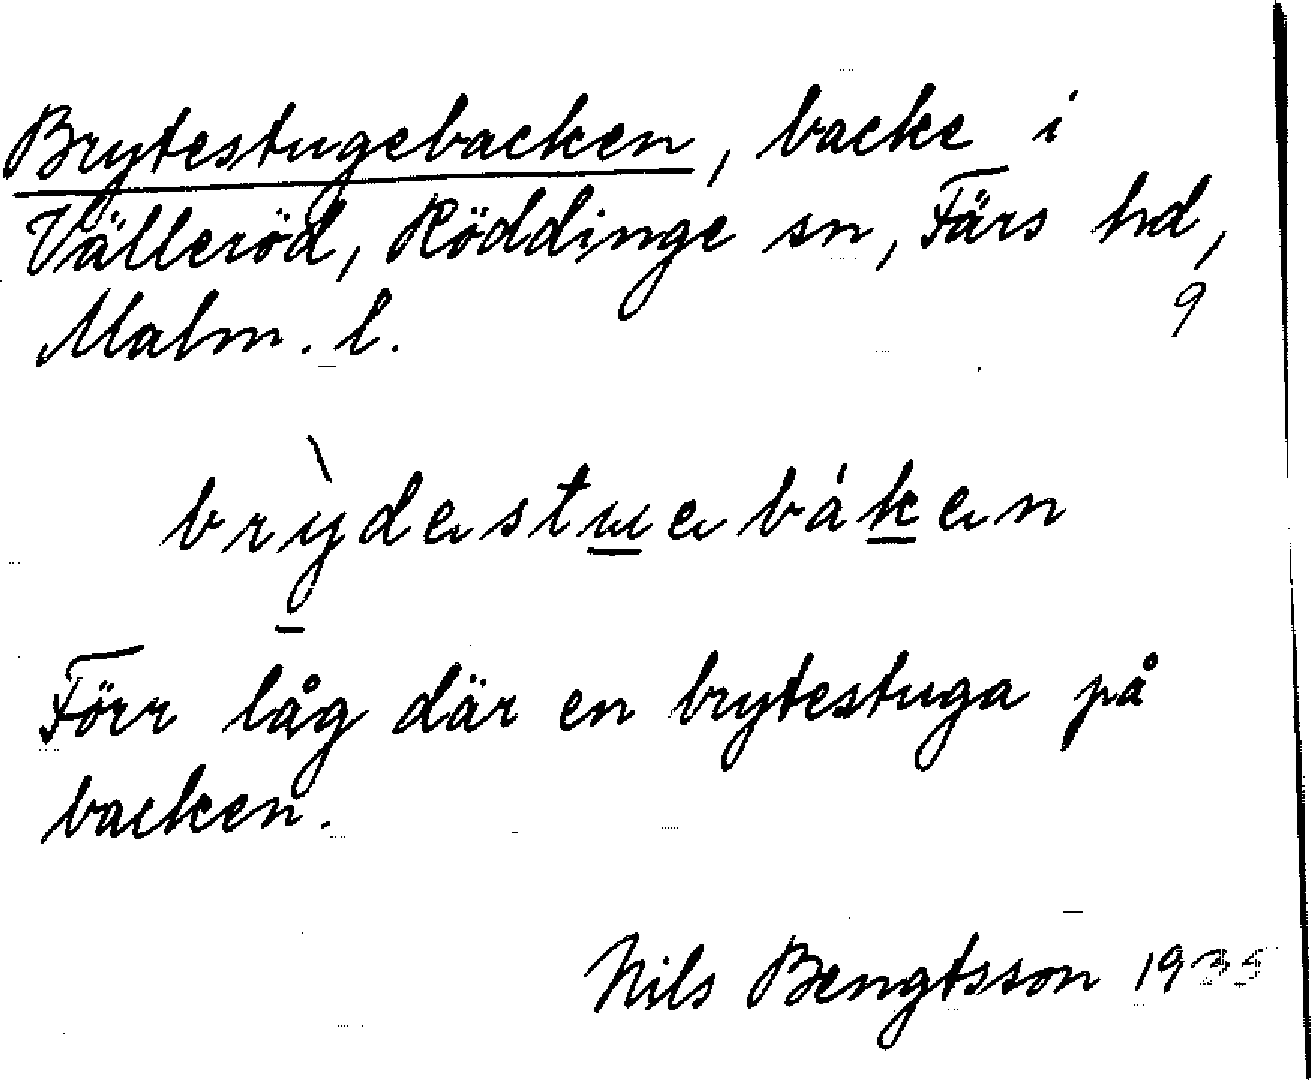 Brytestugebacken, backe i
Välleröd, Röddinge sn, Färs hd,
Malm. l. 9
brỳdestuebáken
Förr låg där en brytestuga på
backen.
Nils Bengtsson 1935